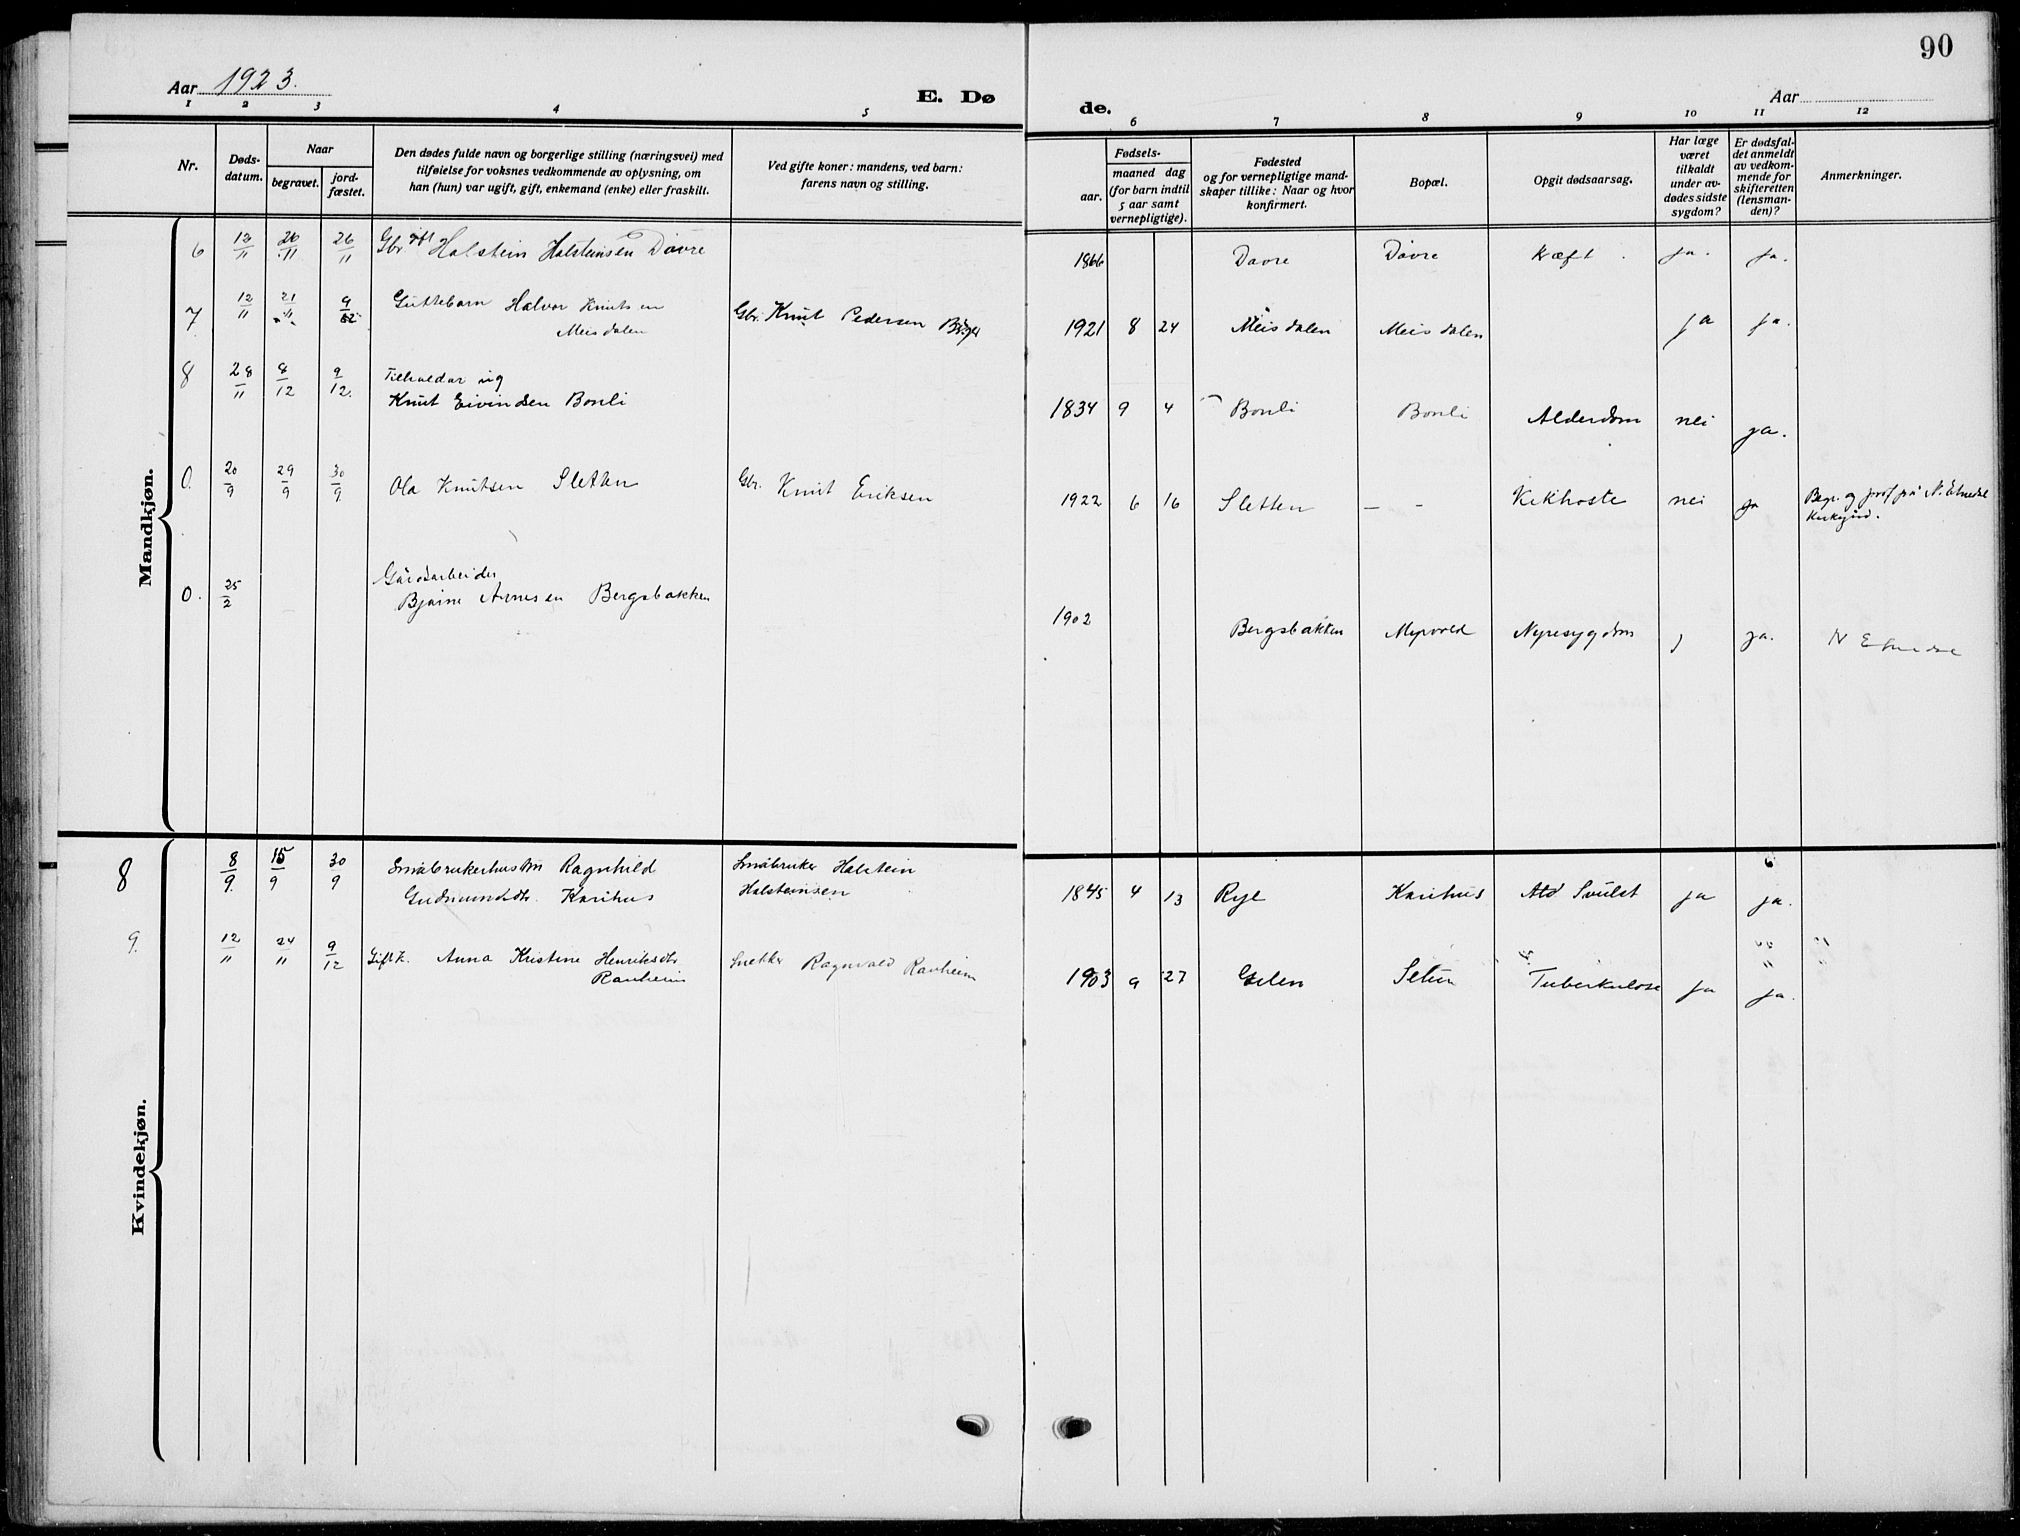 90
Aar 1923.
E. Dø
de.
Aar
1 2 3 4 5 6 7 8 9 10 11 12
Nr.
Døds-
datum.
Naar
begravet.
jord-
fæstet.
Den dødes fulde navn og borgerlige stilling (næringsvei) med
tilføielse for voksnes vedkommende av oplysning, om
han (hun) var ugift, gift, enkemand (enke) eller fraskilt.
Ved gifte koner: mandens, ved barn:
farens navn og stilling.
Fødsels-
aar.
maaned dag
(for barn indtil
5 aar samt
vernepligtige).
Fødested
og for vernepligtige mand-
skaper tillike: Naar og hvor
konfirmert.
Bopæl.
Opgit dødsaarsag.
Har læge
været
tilkaldt
under av-
dødes sidste
sygdom?
Er dødsfal-
det anmeldt
av vedkom-
mende for
skifteretten
(lensman-
den)?
Anmerkninger.
Mandkjøn.
6 13/11 26/11 26/11 Gbr. gift Halstein Halsteinsen Døvre 1866 Døvre Døvre Kræft. ja. ja.
7 12/11 21/11 9/12 Guttebarn Halvor Knutsen
Meisdalen
Gbr. Knut Pedersen 1921 8 24 Meisdalen Meisdalen ja ja.
8 28/11 8/12 9/12. ug
Knut Eivindsen Bonli 1834 9 4 Bonli Bonli Alderdom nei ja.
0. 20/9 29/9 30/9 Ola Knutsen Sletten Gbr. Knut Eriksen 1922 6 16 Sletten — - Kikhoste nei ja Begr. og jordf. på N. Etnedal
Kirkegård.
0. 25/2 Gårdsarbeider
Bjarne Arnesen Bergsbakken 1902 Bergsbakken Myrvold Nyresygdom j ja. N Etnedal
Kvindekjøn.
8 8/9 15/9 30/9 Småbrukerhustru Ragnhild
Gudmundsdtr. Karihus
Småbruker Halstein
Halsteinsen
1845 4 13 Rye Karihus Svulst ja ja.
9. 12/11 24/11 9/12 Gift k. Anna Kristine Henriksdtr
Ranheim
Snekker Ragnvald Ranheim 1903 9 27 Tuberkulose ja ja.